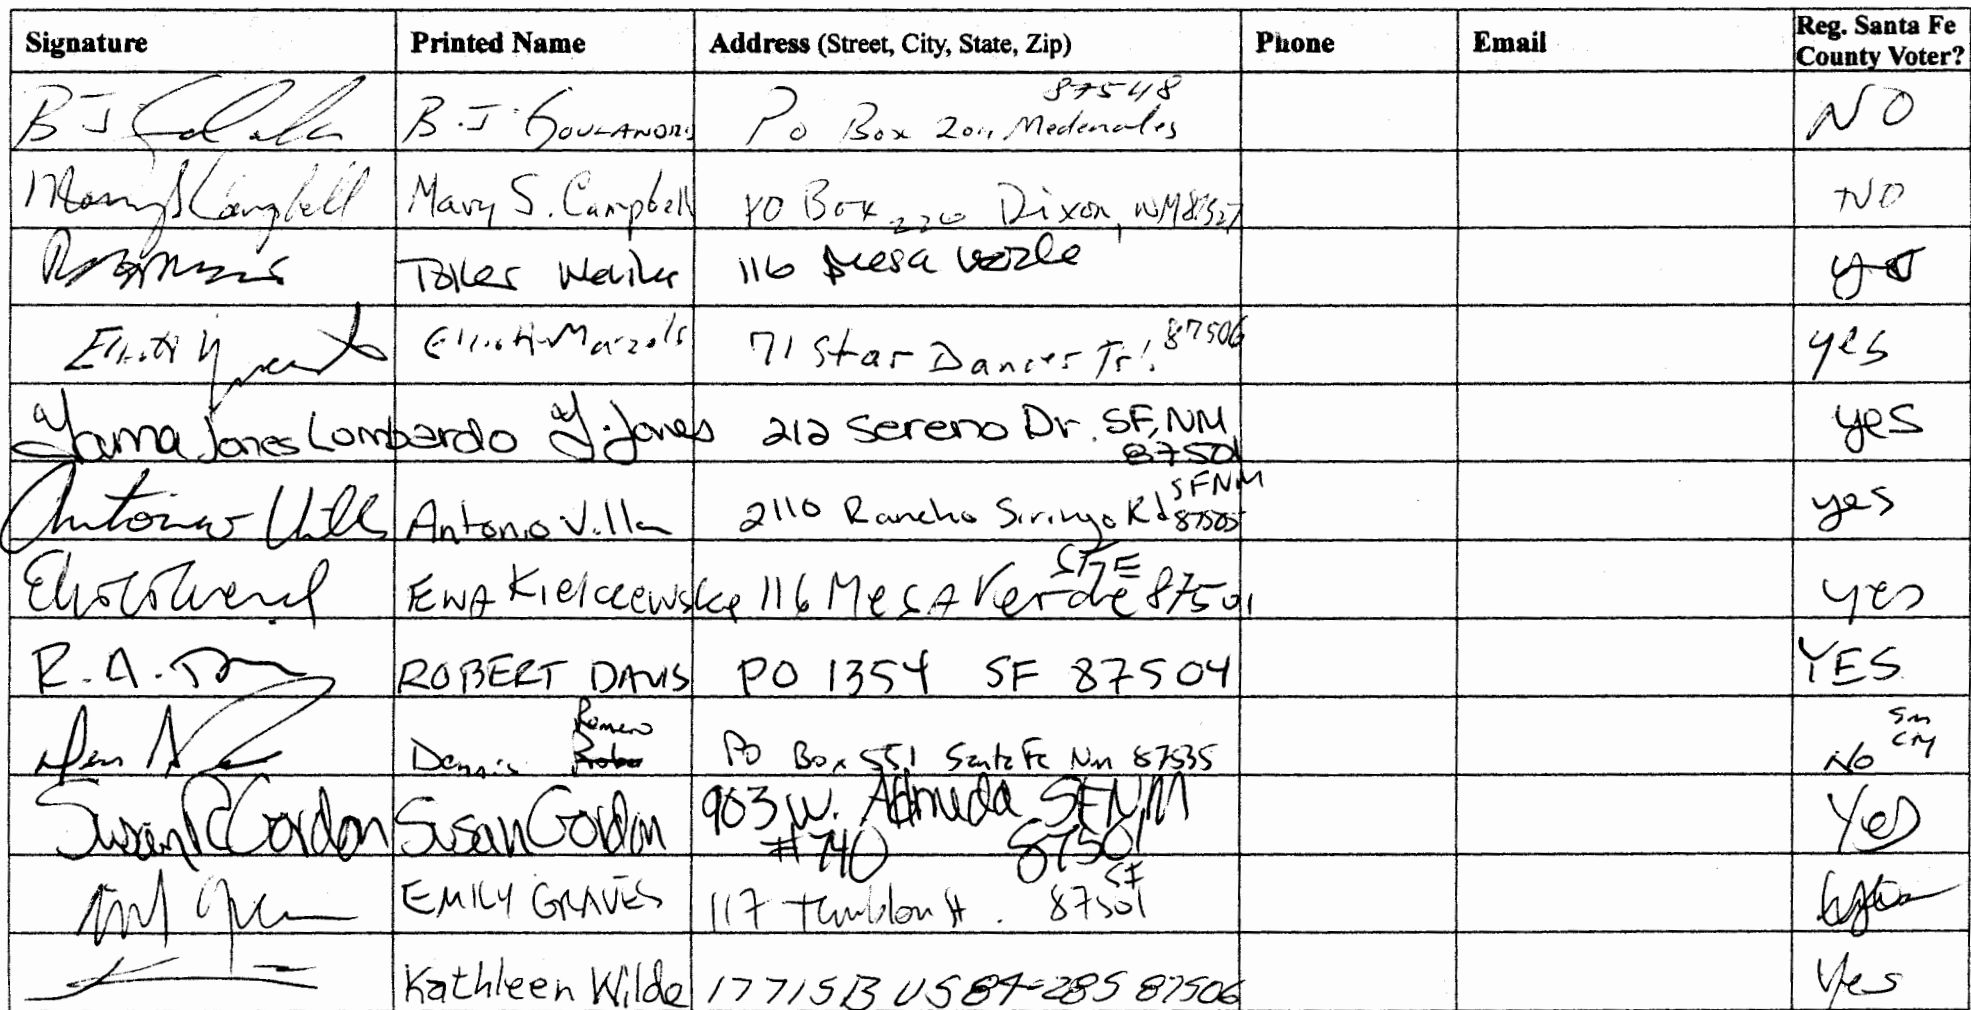 Signature Printed Name Address (Street, City, State, Zip) Phone Email Reg. Santa Fe County Voter?
B J B.J. Goulandris Po Box 201, Medenales 87548 NO
Mary S Campbell Mary S. Campbell PO Box 220 Dixon, NM 87527 NO
116 Mesa Verde yes
Elliott Elliott 71 Star Dancer Trl 87506 yes
Yama Jones Lombardo Y. Jones 212 Sereno Dr. SF, NM 87501 yes
Antonio Villa Antonio Villa 2110 Rancho Siringo Rd SFNM 87505 yes
EWA 116 MESA Verde SFE 87501 yes
R. A. ROBERT DAVIS PO 1354 SF 87504 YES
Dennis Romero Po Box 551 Santa Fe Nm 87535 No
Susan R Gordon Susan Gordon 903 W. Alameda SFNM #740 87501 Yes
EMILY GRAVES 117 St. SF 87501
Kathleen Wilde 17715B US 84-285 87506 Yes